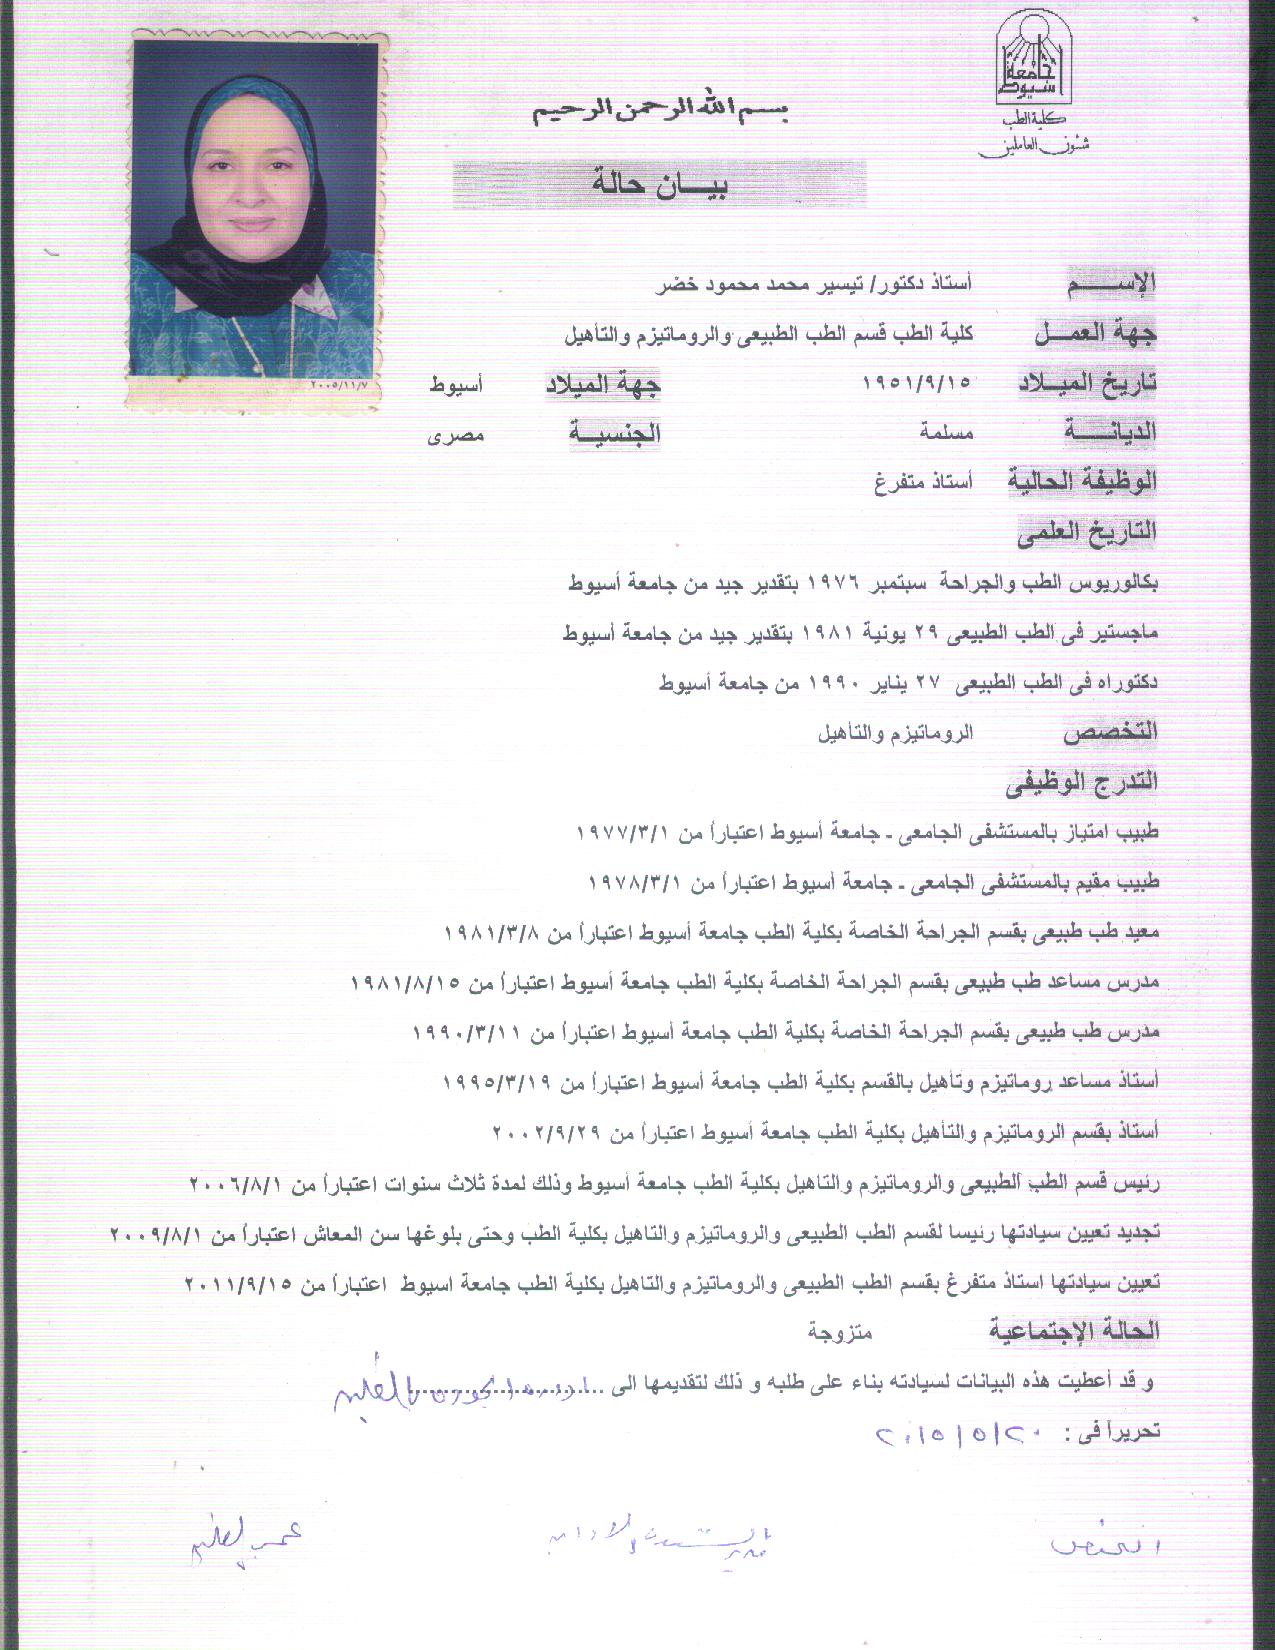 جامعة أسيوط
كلية الطب
شئون العاملين
بسم الله الرحمن الرحيم
بيـــان حالة
٢٠٠٥/١١/٧
الإســــم أستاذ دكتور/ تيسير محمد محمود خضر
جهة العمــل كلية الطب قسم الطب الطبيعى والروماتيزم والتأهيل
تاريخ الميـــلاد ١٩٥١/٩/١٥ جهة الميلاد أسيوط
الديانـــــة مسلمة الجنسيــة مصرى
الوظيفة الحالية أستاذ متفرغ
التاريخ العلمى
بكالوريوس الطب والجراحة سبتمبر ١٩٧٦ بتقدير جيد من جامعة أسيوط
ماجستير فى الطب الطبيعى ٢٩ يونية ١٩٨١ بتقدير جيد من جامعة أسيوط
دكتوراه فى الطب الطبيعى ٢٧ يناير ١٩٩٠ من جامعة أسيوط
التخصص الروماتيزم والتأهيل
التدرج الوظيفى
طبيب امتياز بالمستشفى الجامعى - جامعة أسيوط اعتباراً من ١٩٧٧/٣/١
طبيب مقيم بالمستشفى الجامعى - جامعة أسيوط اعتباراً من ١٩٧٨/٣/١
معيد طب طبيعى بقسم الجراحة الخاصة بكلية الطب جامعة أسيوط اعتباراً من ١٩٨١/٣/٨
مدرس مساعد طب طبيعى بقسم الجراحة الخاصة بكلية الطب جامعة أسيوط اعتباراً من ١٩٨١/٨/١٥
مدرس طب طبيعى بقسم الجراحة الخاصة بكلية الطب جامعة أسيوط اعتباراً من ١٩٩٠/٣/١١
أستاذ مساعد روماتيزم وتأهيل بالقسم بكلية الطب جامعة أسيوط اعتباراً من ١٩٩٥/٣/١٩
أستاذ بقسم الروماتيزم والتأهيل بكلية الطب جامعة أسيوط اعتباراً من ٢٠٠٢/٩/٢٩
رئيس قسم الطب الطبيعى والروماتيزم والتاهيل بكلية الطب جامعة أسيوط وذلك لمدة ثلاث سنوات اعتباراً من ٢٠٠٦/٨/١
تجديد تعيين سيادتها رئيسا لقسم الطب الطبيعى والروماتيزم والتاهيل بكلية الطب وحتى بلوغها سن المعاش اعتباراً من ٢٠٠٩/٨/١
تعيين سيادتها استاذ متفرغ بقسم الطب الطبيعى والروماتيزم والتاهيل بكلية الطب جامعة اسيوط اعتباراً من ٢٠١١/٩/١٥
الحالة الإجتماعية متزوجة
و قد أعطيت هذه البيانات لسيادته بناء على طلبه و ذلك لتقديمها الى
تحريراً فى : ٢٠١٥/٥/٢٠
المختص